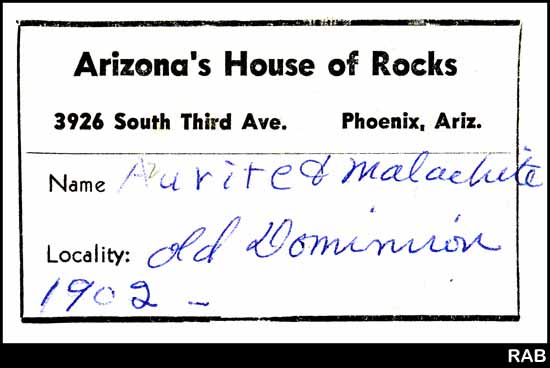 Arizona's House of Rocks
3926 South Third Ave. Phoenix, Ariz.
Name Azurite & Malachite
Locality: Old Dominion
1902 -
RAB